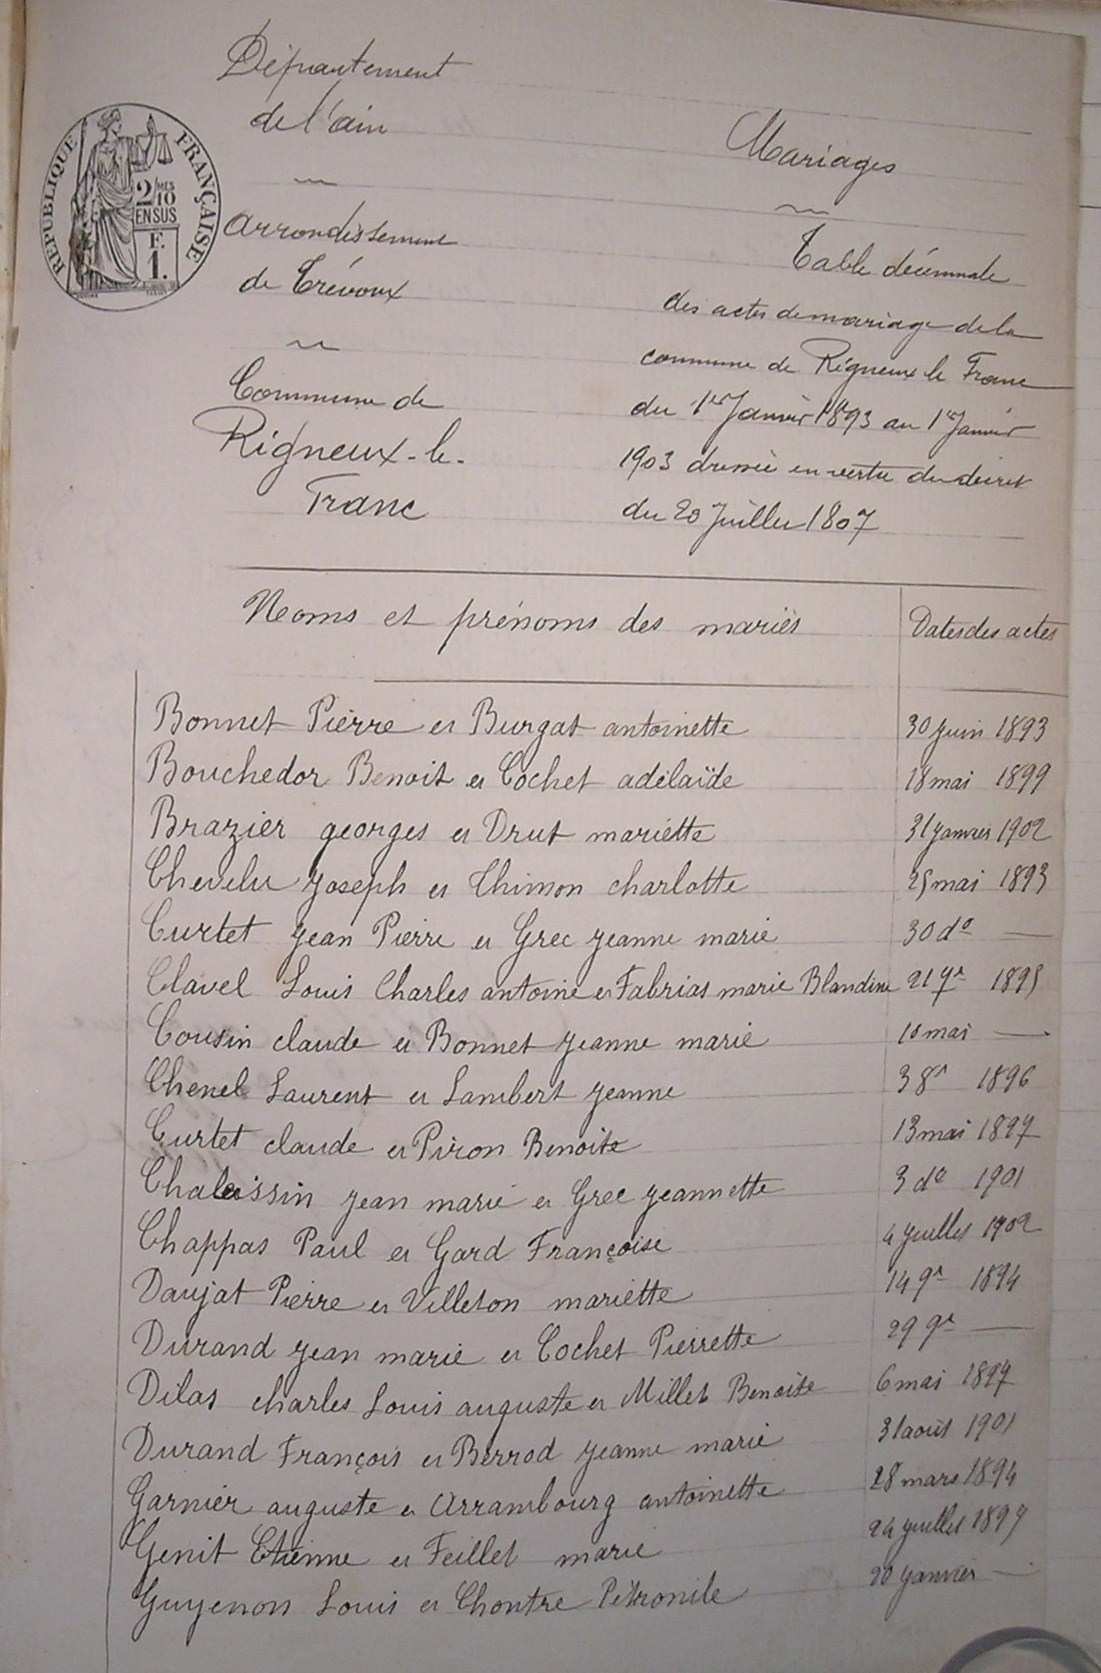 Département
de l'ain
Arrondissement
de Trévoux
Commune de
Rigneux-le-
Franc
RÉPUBLIQUE FRANÇAISE
2/10
MES
EN SUS
E.
1.
Mariages
Table décennale
des actes de mariage de la
commune de Rigneux le Franc
du 1er Janvier 1893 au 1er Janvier
1903 dressée en vertu du décret
du 20 Juillet 1807
Noms et prénoms des mariés Dates des actes
Bonnet Pierre et Burgat antoinette 30 juin 1893
Bouchedor Benoit et Cochet adélaïde 18 mai 1899
Brazier georges et Drut mariette 31 janvier 1902
Chevelu Joseph et Thimon charlotte 25 mai 1893
Curtet Jean Pierre et Grec Jeanne marie 30 do —
Clavel Louis Charles antoine et Fabrias marie Blandine 21 7re 1895
Cousin claude et Bonnet Jeanne marie 10 mai —
Chenel Laurent et Lambert Jeanne 3 8re 1896
Curtet claude et Piron Benoite 13 mai 1897
Chaleissin Jean marie et Grec Jeannette 3 do 1901
Chappas Paul et Gard Françoise 4 Juillet 1902
Daujat Pierre et Villeton mariette 14 9re 1894
Durand Jean marie et Cochet Pierrette 29 9re —
Dilas charles Louis auguste et Millet Benoite 6 mai 1897
Durand François et Berrod Jeanne marie 31 août 1901
Garnier auguste et Arrambourg antoinette 28 mars 1894
Genit Etienne et Feillet marie 24 juillet 1897
Guyenon Louis et Chontre Pétronile 20 Janvier —